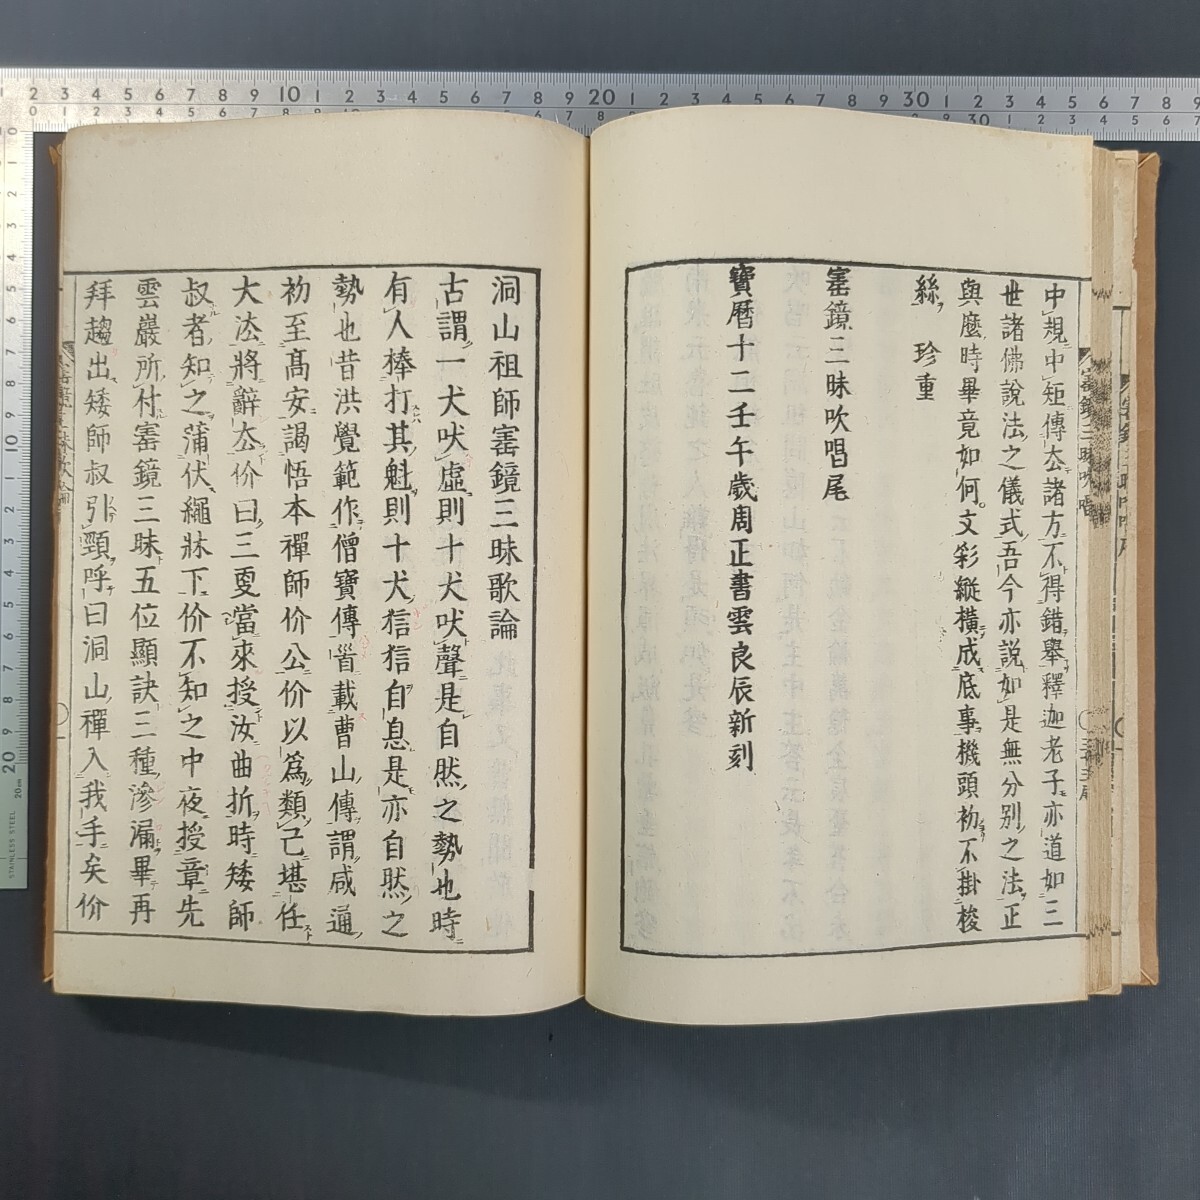 中規中矩傳去諸方不得錯舉釋迦老子亦道如三
世諸佛說法之儀式吾今亦說如是無分別之法正
與麼時畢竟如何文彩縱橫成底事機頭初不掛梭
絲珍重
寚鏡三昧吹唱尾
寶曆十二壬午歲周正書雲良辰新刻
洞山祖師寚鏡三昧歌論
古謂一犬吠虛則十犬吠聲是自然之勢也時
有人棒打其魁則十犬狺狺自息是亦自然之
勢也昔洪覺範作僧寶傳首載曹山傳謂咸通
初至高安謁悟本禪師价公价以爲類己堪任
大法將辭去价曰三更當來授汝曲折時矮師
叔者知之蒲伏繩牀下价不知之中夜授章先
雲巖所付寚鏡三昧五位顯訣三種滲漏畢再
拜趨出矮師叔引頸呼曰洞山禪入我手矣价
寚鏡三昧吹唱